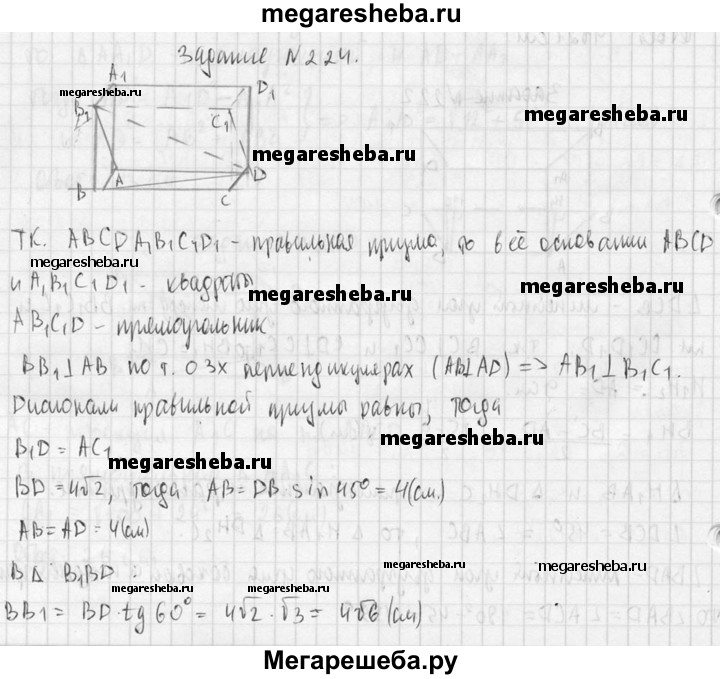 megaresheba.ru
Задание N224.
A1
megaresheba.ru
D1
B1
C1
megaresheba.ru
megaresheba.ru
A
D
B
C
Т.К. ABCDA1B1C1D1 - правильная призма, то в её основании ABCD
megaresheba.ru
megaresheba.ru
и A1B1C1D1 - квадраты
megaresheba.ru
AB1C1D - прямоугольник
BB1⊥AB по т. о 3х перпендикулярах (AB⊥AD) => AB1⊥B1C1.
Диагонали правильной призмы равны, тогда
B1D = AC1
megaresheba.ru
megaresheba.ru
BD = 4√2, тогда AB = DB sin 45° = 4(см.)
AB = AD = 4(см)
megaresheba.ru
megaresheba.ru
В Δ B1BD :
megaresheba.ru
megaresheba.ru
BB1 = BD · tg 60° = 4√2 · √3 = 4√6 (см)
Мегарешеба.ру